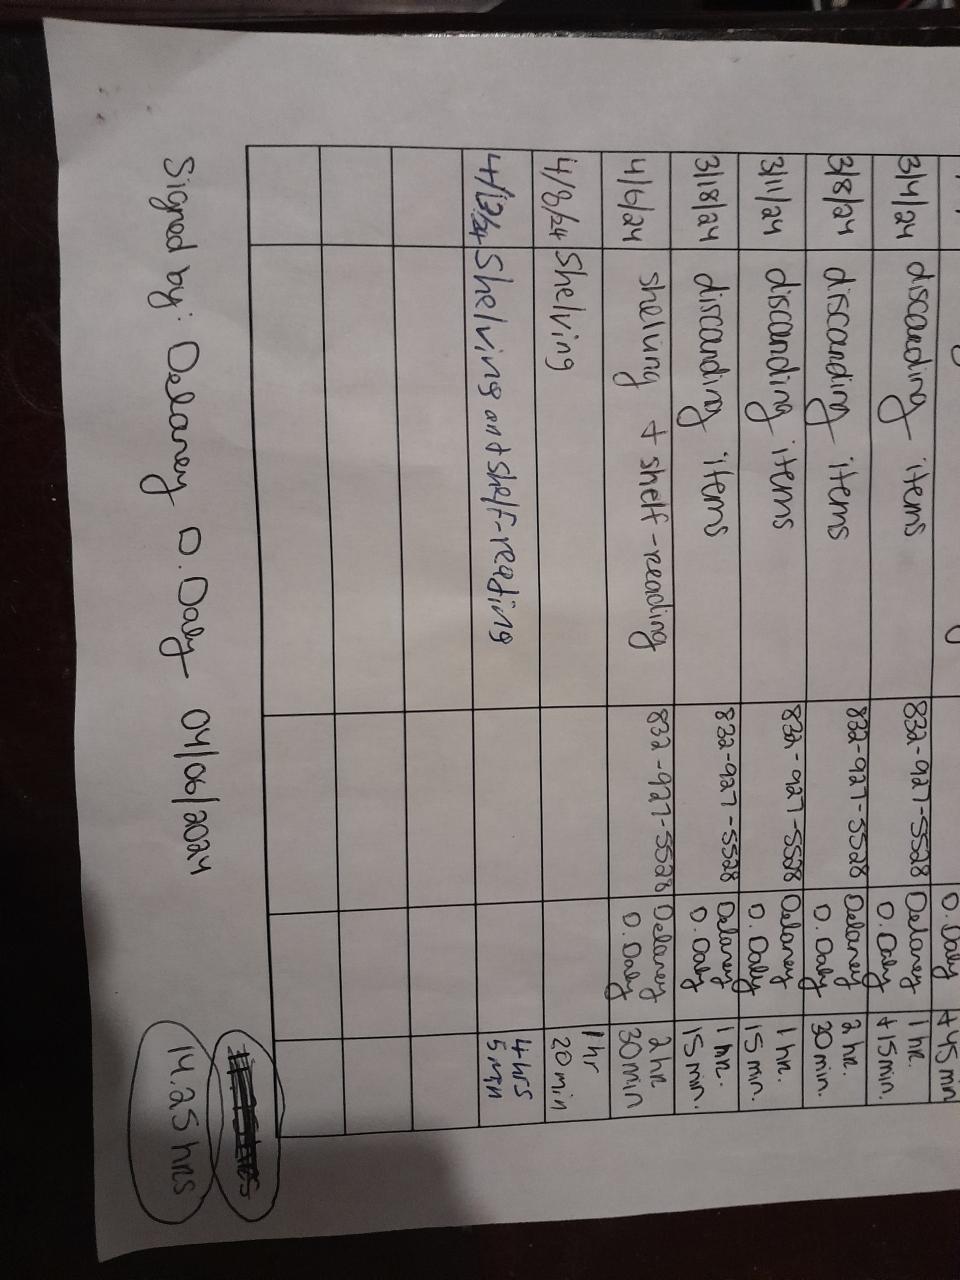 D. Daly + 45 min
3/4/24 discarding items 832-927-5528 Delaney D. Daly 1 hr. + 15 min.
3/8/24 discarding items 832-927-5528 Delaney D. Daly 2 hr. 30 min.
3/11/24 discarding items 832-927-5528 Delaney D. Daly 1 hr. 15 min.
3/18/24 discarding items 832-927-5528 Delaney D. Daly 1 hr. 15 min.
4/6/24 shelving + shelf-reading 832-927-5528 Delaney D. Daly 2 hr 30 min
4/8/24 Shelving 1 hr 20 min
4/13/24 Shelving and shelf-reading 4 hrs 5 min
Signed by: Delaney D. Daly 04/06/2024
14.25 hrs